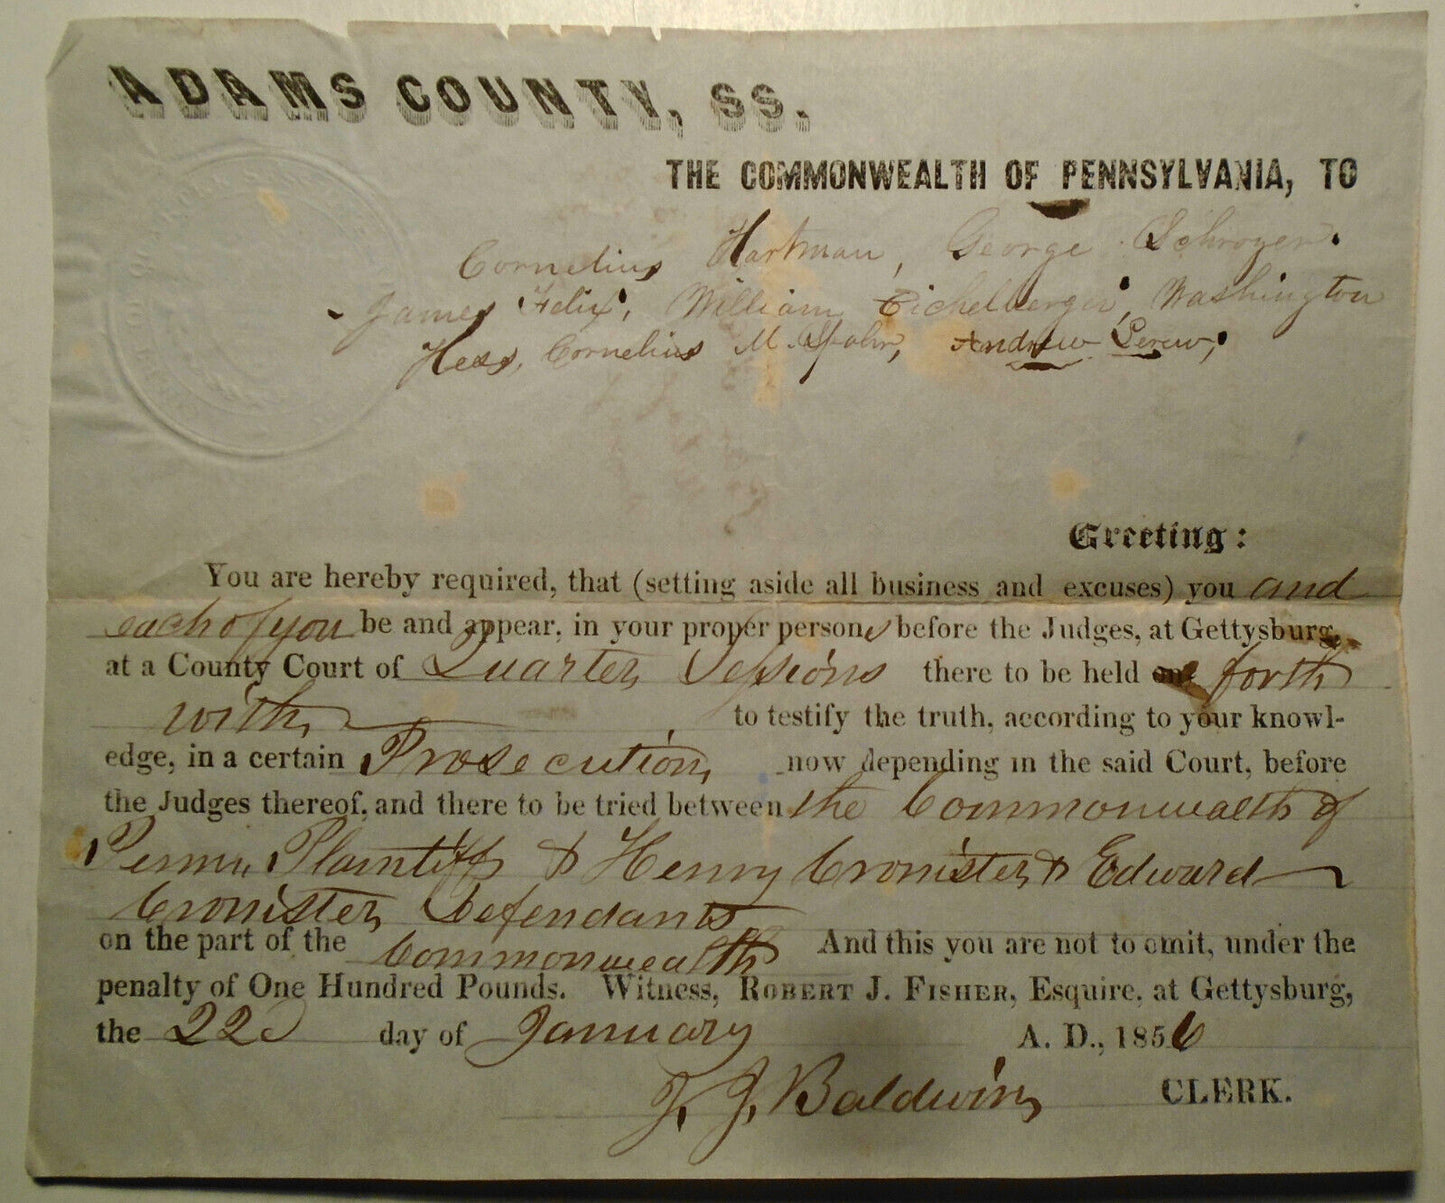 ADAMS COUNTY, SS.
THE COMMONWEALTH OF PENNSYLVANIA, TO
Cornelius Hartman, George Schroyer,
James Felix, William Eichelberger, Washington
Hess, Cornelius M. Stahr, Andrew Lerew,
Greeting:
You are hereby required, that (setting aside all business and excuses) you and
each of you be and appear, in your proper persons before the Judges, at Gettysburg,
at a County Court of Quarter Sessions there to be held forth
with to testify the truth, according to your knowl-
edge, in a certain Prosecution now depending in the said Court, before
the Judges thereof, and there to be tried between the Commonwealth of
Penna. Plaintiffs & Henry Cronister & Edward
Cronister Defendants
on the part of the Commonwealth And this you are not to omit, under the
penalty of One Hundred Pounds. Witness, ROBERT J. FISHER, Esquire, at Gettysburg,
the 22d day of January A. D., 1856
J. J. Baldwin CLERK.